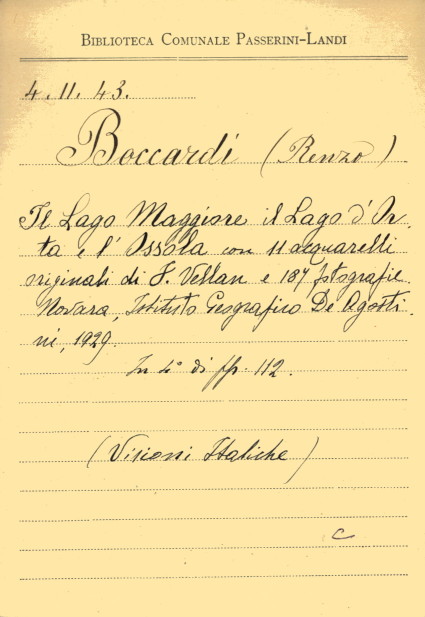 BIBLIOTECA COMUNALE PASSERINI-LANDI
4.11.43.
Boccardi (Renzo)
Il Lago Maggiore il Lago d'Or-
ta e l'Ossola con 11 acquarelli
originali di F. Vellan e 187 fotografie.
Novara, Istituto Geografico De Agosti-
ni, 1929.
In 4° di pp. 112.
(Visioni Italiche)
C